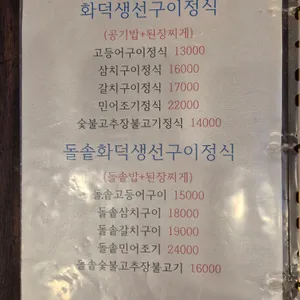 화덕생선구이정식
(공기밥+된장찌게)
고등어구이정식 13000
삼치구이정식 16000
갈치구이정식 17000
민어조기정식 22000
숯불고추장불고기정식 14000
돌솥화덕생선구이정식
(돌솥밥+된장찌게)
돌솥고등어구이 15000
돌솥삼치구이 18000
돌솥갈치구이 19000
돌솥민어조기 24000
돌솥숯불고추장불고기 16000